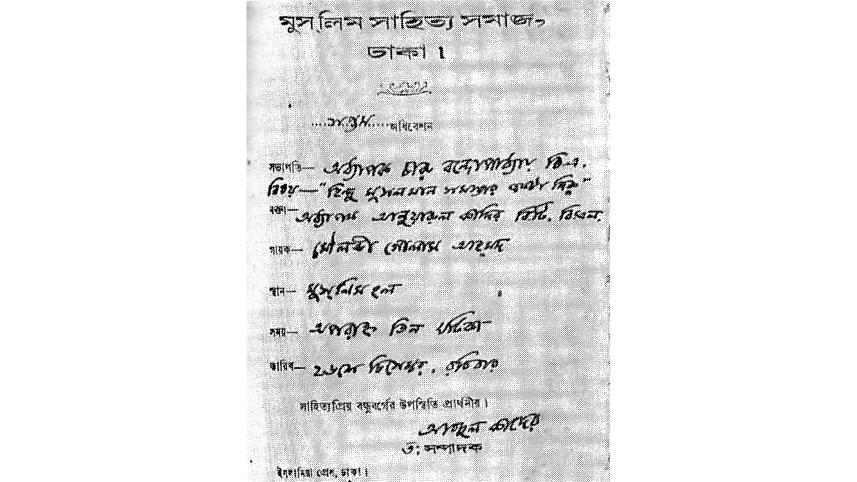 মুস্‌লিম সাহিত্য সমাজ,
ঢাকা।
....সপ্তম.... অধিবেশন
সভাপতি— অধ্যাপক চারু বন্দ্যোপাধ্যায় বি.এ.
বিষয়—"হিন্দু মুসলমান সমস্যার
বক্তা— অধ্যাপক আনুয়ারুল কাদির বি.টি. বি.এল.
গায়ক— মৌলভী গোলাম আহমদ
স্থান— মুস্‌লিম হল
সময়— অপরাহ্ণ তিন ঘটিকা
তারিখ— ২৬শে ডিসেম্বর, রবিবার
সাহিত্যপ্রিয় বন্ধুবর্গের উপস্থিতি প্রার্থনীয়।
আবদুল কাদের
সম্পাদক
ইসলামিয়া প্রেস, ঢাকা।